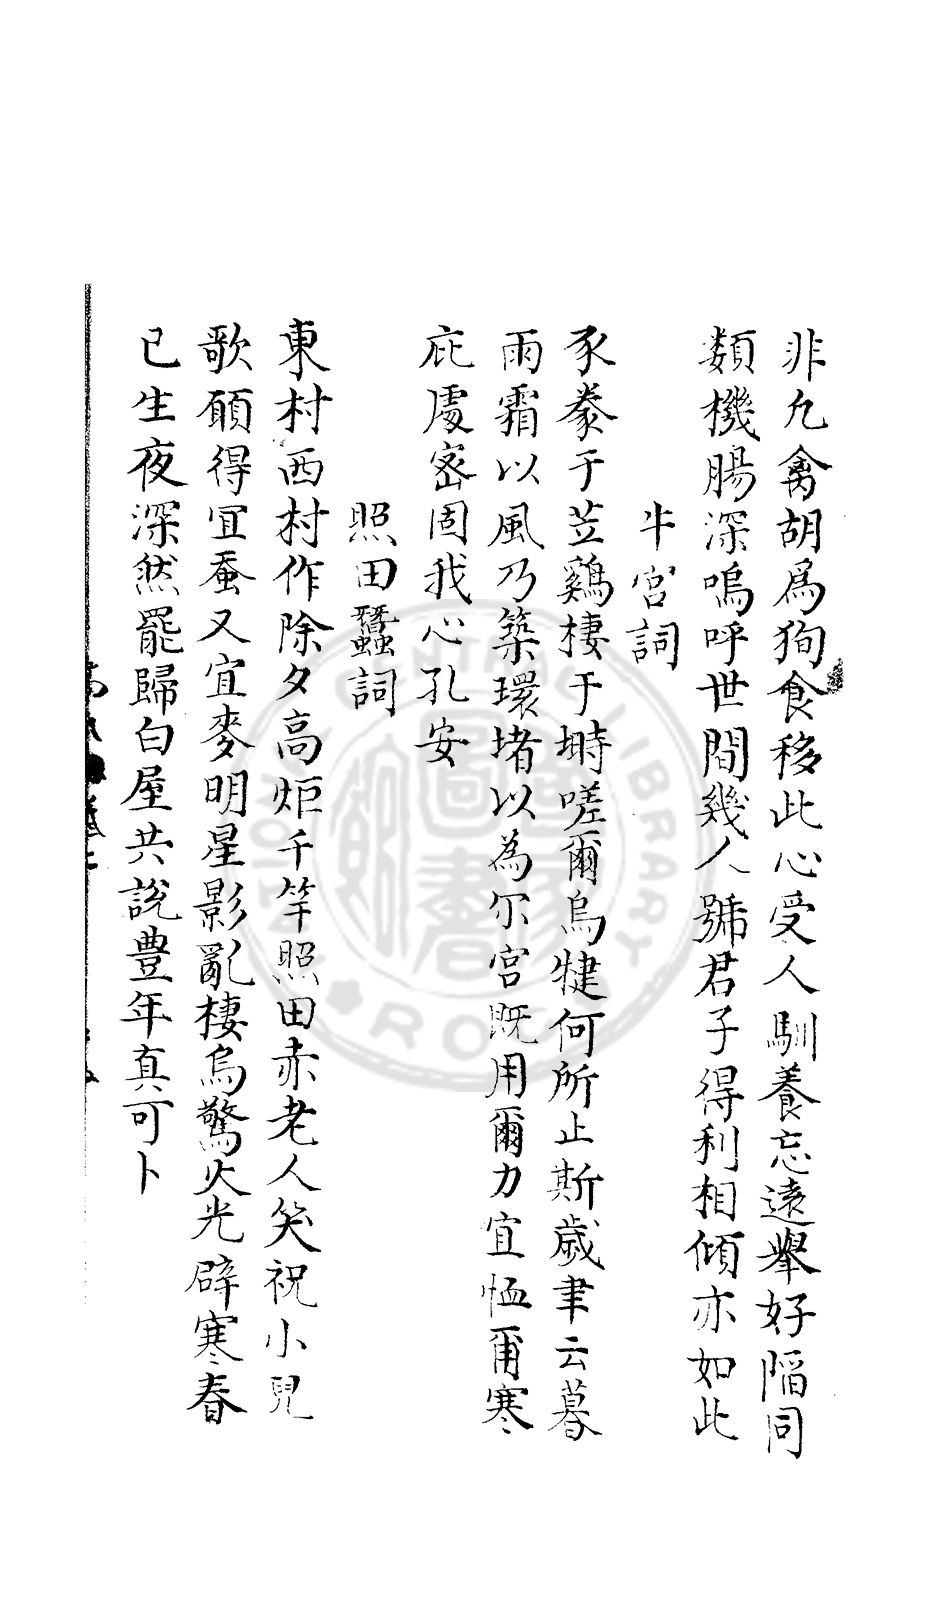 非凢禽胡爲狥食移此心受人馴養忘遠舉好陷同
類機腸深嗚呼世間幾人號君子得利相傾亦如此
牛宮詞
豕豢于苙鷄棲于塒嗟爾烏犍何所止斯歲聿云暮
雨霜以風乃築環堵以為尔宮既用爾力宜恤爾寒
庇處宻固我心孔安
照田蠶詞
東村西村作除夕高炬千竿照田赤老人笑祝小兒
歌願得冝蚕又宜麥明星影亂棲烏驚火光辟寒春
已生夜深然罷歸白屋共說豊年真可卜
NATIONAL CENTRAL LIBRARY R.O.C.
國家圖書館